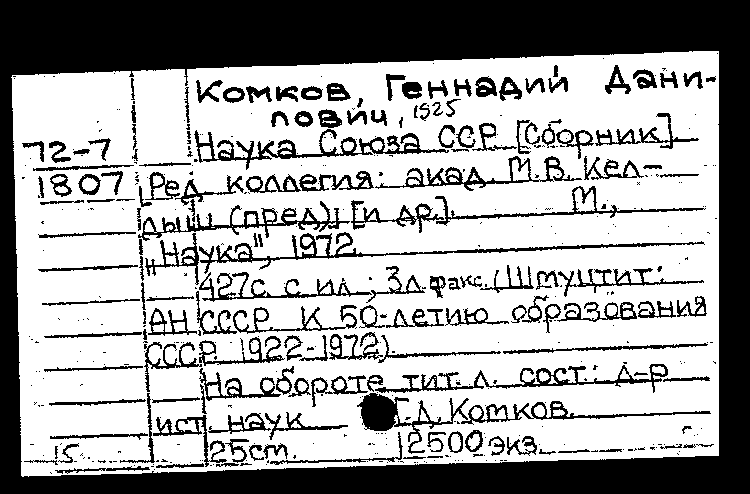 Комков, Геннадий Дани-
лович, 1925
72-7 Наука Союза ССР. [Сборник].
1807 [Ред. коллегия: акад. М.В. Кел-
дыш (пред.)] [и др.]. М.,
„Наука", 1972.
427с. с ил.; 3л. факс. (Шмуцтит:
АН СССР. К 50-летию образования
СССР. 1922-1972).
На обороте тит. л. сост.: д-р
ист. наук Г.Д. Комков.
15 25см. 12500 экз.